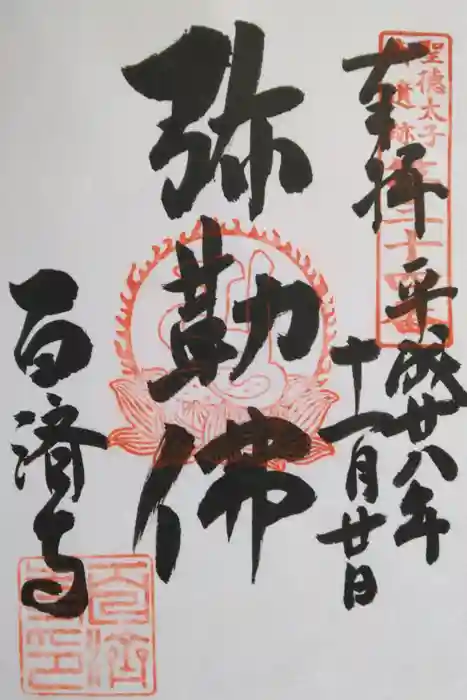 奉拝
平成廿八年
十一月廿日
弥勒佛
百済寺
聖徳太子
御遺跡
三十四番